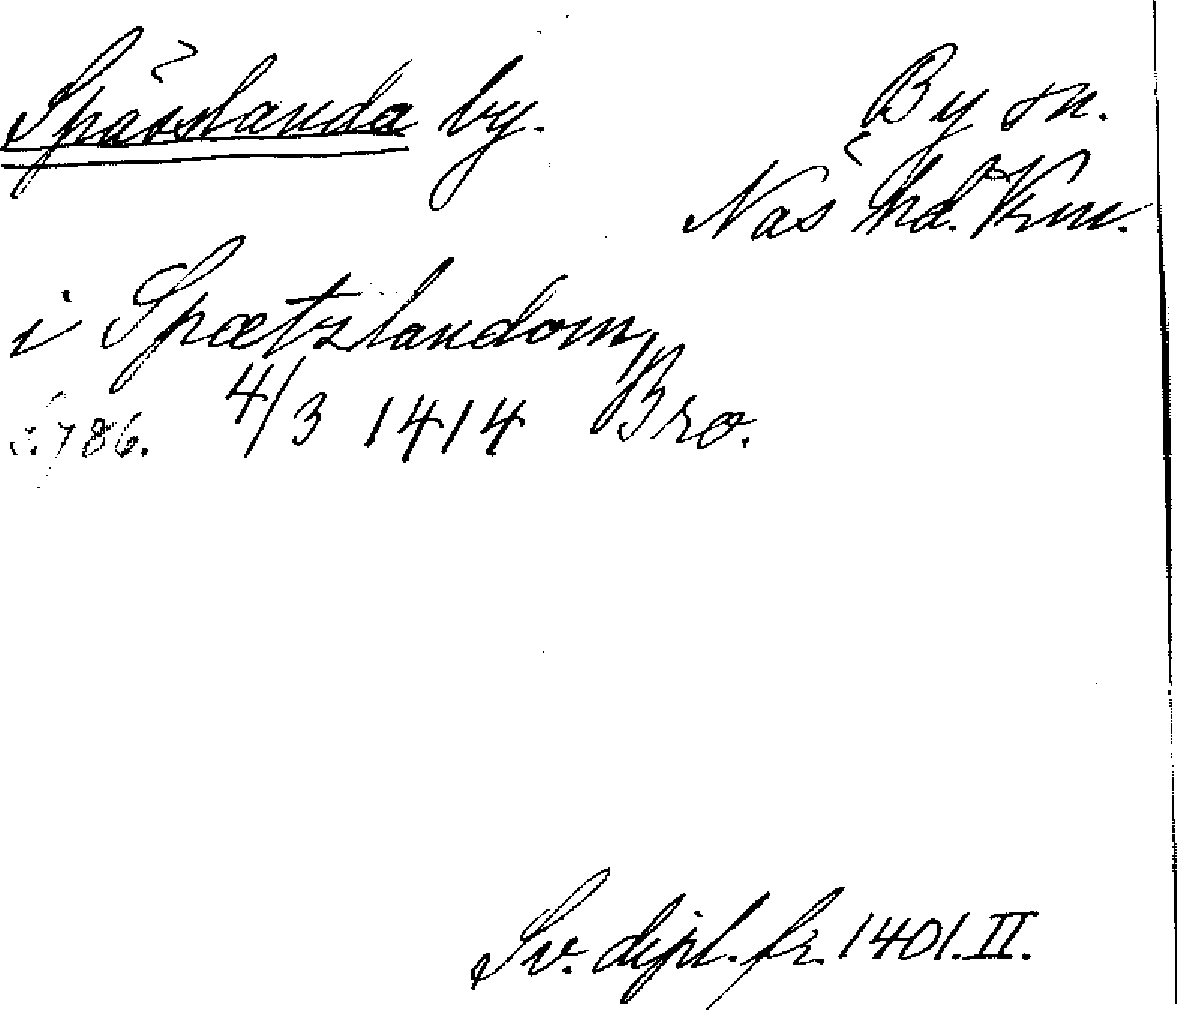 Spässlanda by.
By sn.
Näs hd. Krm.
i Spætzlandom,
s. 786. 4/3 1414 Bro.
Sv. dipl. fr. 1401. II.